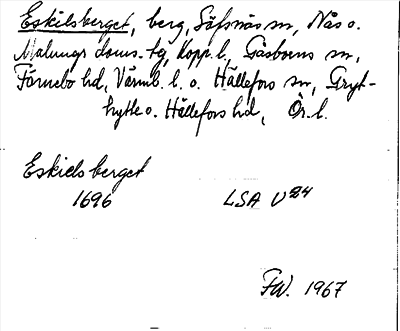 Eskilsberget, berg, Säfsnäs sn, Nås o.
Malungs doms. tg, Kopp. l., Gåsborns sn,
Färnebo hd, Värml. l. o. Hällefors sn, Gryt-
hytte o. Hällefors hd, Ör. l.
Eskielsberget
1696 LSA U 24
FW. 1967